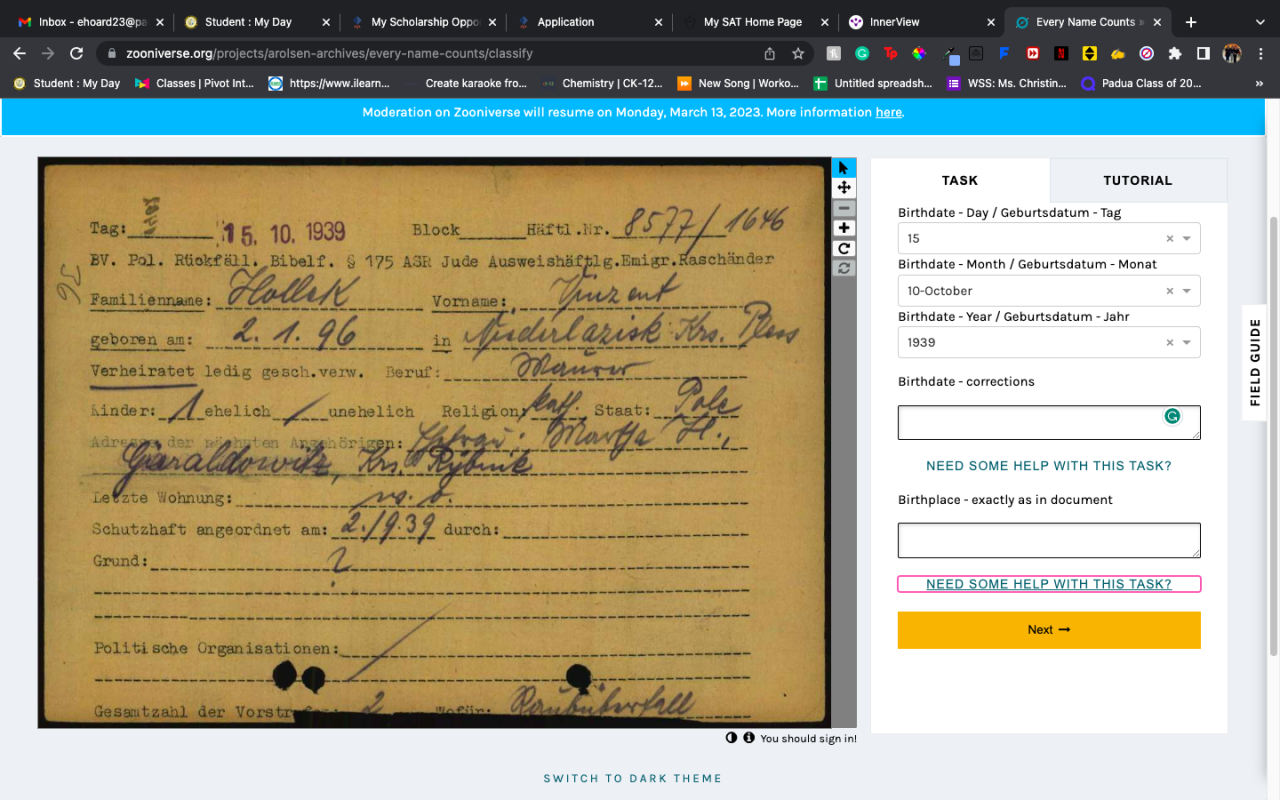 Inbox - ehoard23@pa
Student : My Day
My Scholarship Oppo
Application
My SAT Home Page
InnerView
Every Name Counts »
zooniverse.org/projects/arolsen-archives/every-name-counts/classify
Student : My Day
Classes | Pivot Int...
https://www.ilearn...
Create karaoke fro...
Chemistry | CK-12...
New Song | Worko...
Untitled spreadsh...
WSS: Ms. Christin...
Padua Class of 20...
»
Moderation on Zooniverse will resume on Monday, March 13, 2023. More information here.
Tag: 15. 10. 1939 Block Häftl.Nr. 8577/1646
BV. Pol. Rückfäll. Bibelf. § 175 ASR Jude Ausweishäftlg.Emigr.Raschänder
Familienname: Hollek Vorname: Vinzent
geboren am: 2. 1. 96 in Niederlazisk Krs. Pless
Verheiratet ledig gesch.verw. Beruf: Maurer
Kinder: 1 ehelich / unehelich Religion: kath. Staat: Pole
Adresse der nächsten Angehörigen: Ehefrau: Martha H.,
Krs. Rybnik
Letzte Wohnung: w. o.
Schutzhaft angeordnet am: 2./9.39 durch:
Grund: ?
Politische Organisationen:
Gesamtzahl der Vorstrafen: 2 Wofür: Raubüberfall
You should sign in!
SWITCH TO DARK THEME
TASK
TUTORIAL
Birthdate - Day / Geburtsdatum - Tag
15
Birthdate - Month / Geburtsdatum - Monat
10-October
Birthdate - Year / Geburtsdatum - Jahr
1939
Birthdate - corrections
NEED SOME HELP WITH THIS TASK?
Birthplace - exactly as in document
NEED SOME HELP WITH THIS TASK?
Next →
FIELD GUIDE